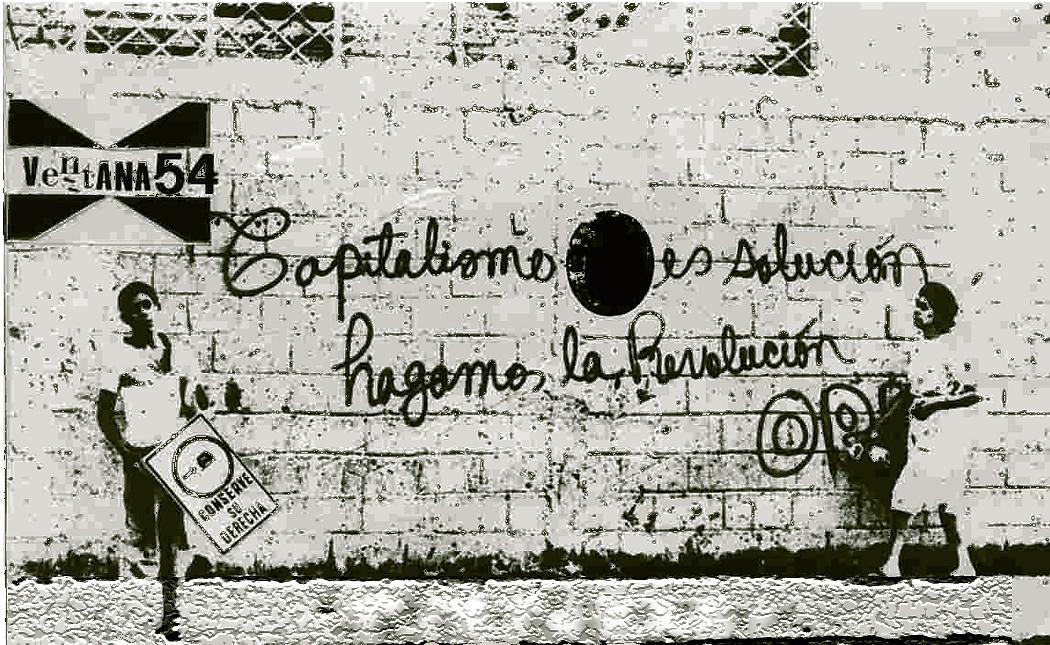 VentANA54
Capitalismo es solución
hagamos la Revolución
CONSERVE
SU
DERECHA